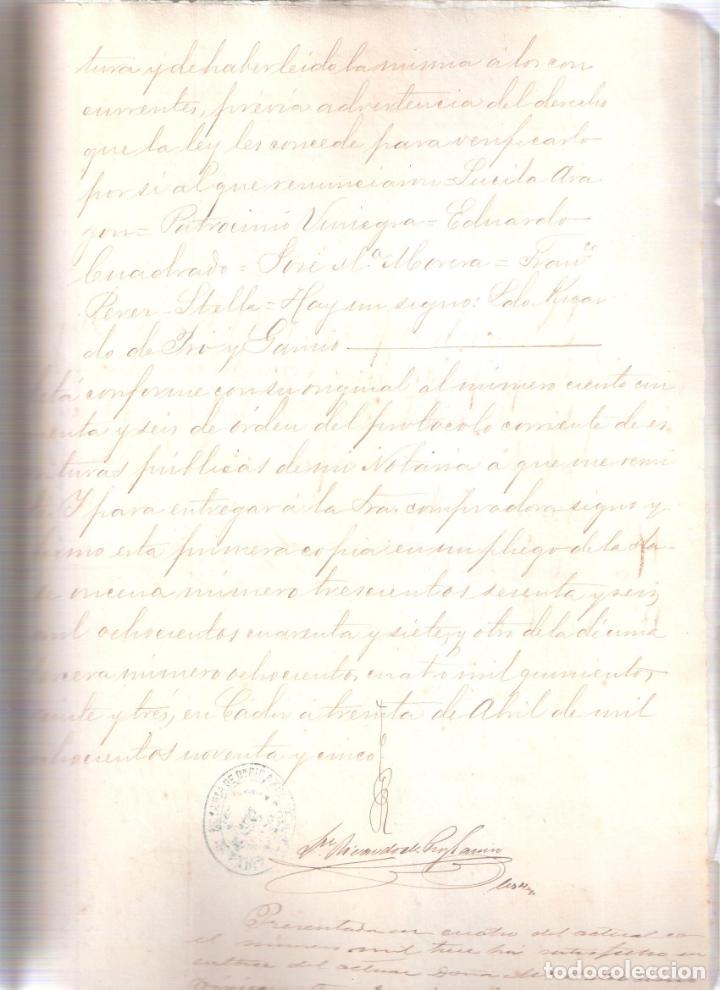 tura y de haber leido la misma á los con
currentes, prévia advertencia del derecho
que la ley les concede para verificarlo
por si al que renunciaron = Lucila Ara
gon = Patrocinio Viniegra = Eduardo
Cuadrado = José Mª Morera = Franco
Perez - Stella = Hay un signo: Ldo. Ricar
do de Pró y
Está conforme con su original al número ciento cin
cuenta y seis de órden del protocolo corriente de es
crituras públicas de mi Notaría á que me remi
to. Y para entregar á la Sra. compradora, signo y
firmo esta primera copia en un pliego de la cla-
se oncena número trescientos sesenta y seis
mil ochocientos cuarenta y siete, y otro de la décima
tercera número ochocientos cuatro mil quinientos
veinte y trés, en Cádiz á treinta de Abril de mil
ochocientos noventa y cinco
Ricardo de Pro
Presentada en cuatro del actual con
el número mil trece ha satisfecho en
del actual Doña
todocoleccion.net